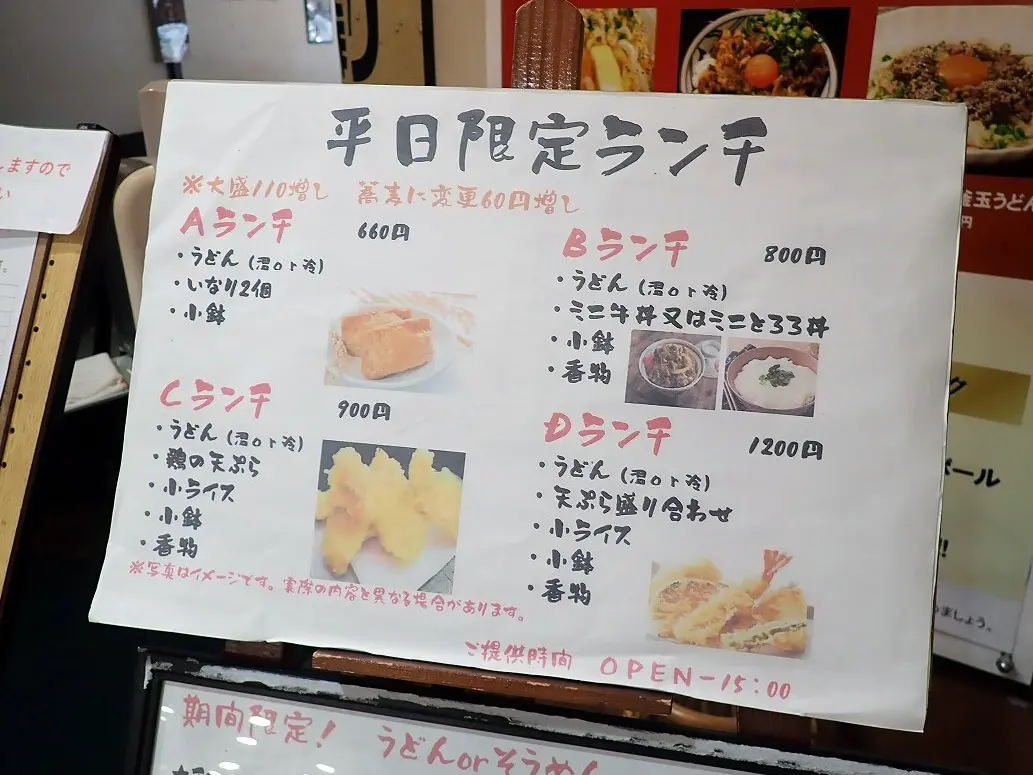 平日限定ランチ
※大盛110増し 蕎麦に変更60円増し
Aランチ 660円
・うどん(温or冷)
・いなり2個
・小鉢
Bランチ 800円
・うどん(温or冷)
・ミニ牛丼又はミニとろろ丼
・小鉢
・香物
Cランチ 900円
・うどん(温or冷)
・鶏の天ぷら
・小ライス
・小鉢
・香物
Dランチ 1200円
・うどん(温or冷)
・天ぷら盛り合わせ
・小ライス
・小鉢
・香物
※写真はイメージです。実際の内容と異なる場合があります。
ご提供時間 OPEN-15:00
期間限定! うどんorそうめん
しますので
い
釜玉うどん
円
ク
ボール
ましょう。